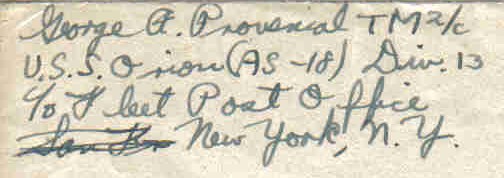 George A. Provenial TM2/c
U.S.S. Orion (AS-18) Div. 13
c/o Fleet Post Office
New York, N.Y.